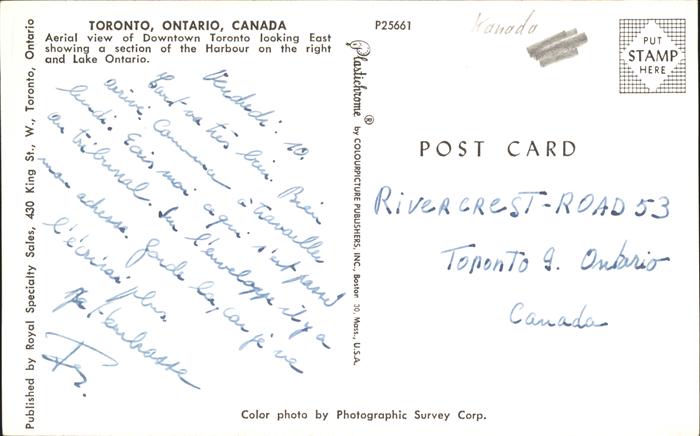 TORONTO, ONTARIO, CANADA
Aerial view of Downtown Toronto looking East
showing a section of the Harbour on the right
and Lake Ontario.
Vendredi. 10.
Tout va très bien. Bien
arrivé. Commence à travailler
lundi. Ecris moi ce qui s'est passé
au tribunal. Sur l'enveloppe il y a
mon adresse. Garde la, car je ne
l'écrirai plus.
Je t'embrasse
Published by Royal Specialty Sales, 430 King St., W., Toronto, Ontario
Plastichrome ® by COLOURPICTURE PUBLISHERS, INC., Boston 30, Mass., U.S.A.
P25661
Kanada
PUT
STAMP
HERE
POST CARD
RIVERCREST-ROAD 53
Toronto 9. Ontario
Canada
Color photo by Photographic Survey Corp.